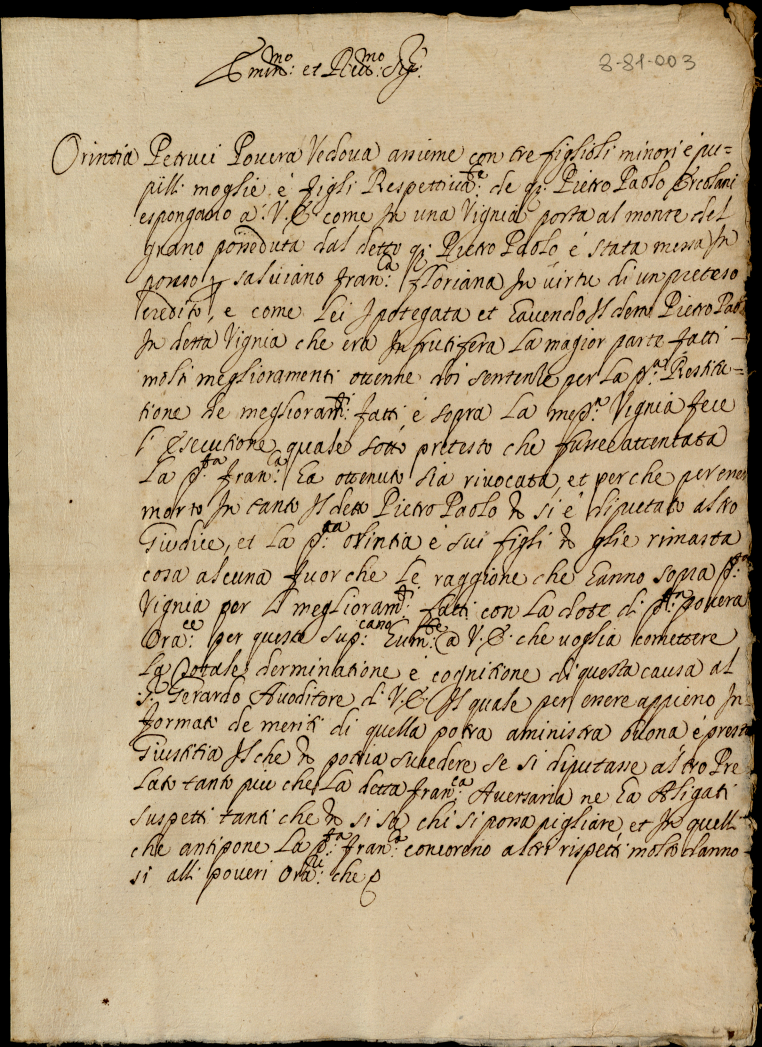 8-81-003
Emin:mo et Reu:mo Sig:r
Orintia Petruci Pouera Vedoua assieme con tre figlioli minori è pu=
pilli moglie, è figli Respettiuam:te de q: Pietro Paolo Ercolani
espongano à V.E. come In una Vignia posta al monte del
grano posseduta dal detto q: Pietro Paolo è stata messa In
possesso Saluiano Fran:ca Floriana In uirtù di un preteso
credito, e come lei Ipotegata et hauendo Il detto Pietro Paolo
In detta Vignia che era Infrutifera la magior parte fatti
molti meglioramenti ottenne doi sentenze per la p:ta Restitu=
tione de meglioram:ti fatti è sopra la med:ma Vignia fece
l'esecutione, quale sotto pretesto che fusse attentata
la p:ta Fran:ca ha ottenuto sia riuocata, et perche per esser
morto In tanto Il detto Pietro Paolo nõ si è diputato altro
Giudice, et la p:ta Orintia è sui figli nõ glie rimasta
cosa alcuna fuor che le raggione che hanno sopra p:ta
Vignia per lioglioram:ti fatti con la dote di p:ta pouera
Ora:ce per questo sup:cano hum:te à V.E. che uoglia comettere
la totale derminatione è cognitione di questa causa al
S: Gerardo Auoditore di V.E. Il quale per essere appieno In
formato de meriti di quella potra aministra buona è presta
Giustitia Il che nõ potria sucedere se si diputasse altro Pre
lato tanto piu che la detta Fran:ca Auersaria ne ha Aligati
suspetti tanti che nõ si sa chi si possa pigliare, et In quelli
che antipone la p:ta Fran:ca concoreno altri rispetti molto danno
si alli poueri Ora:ri che